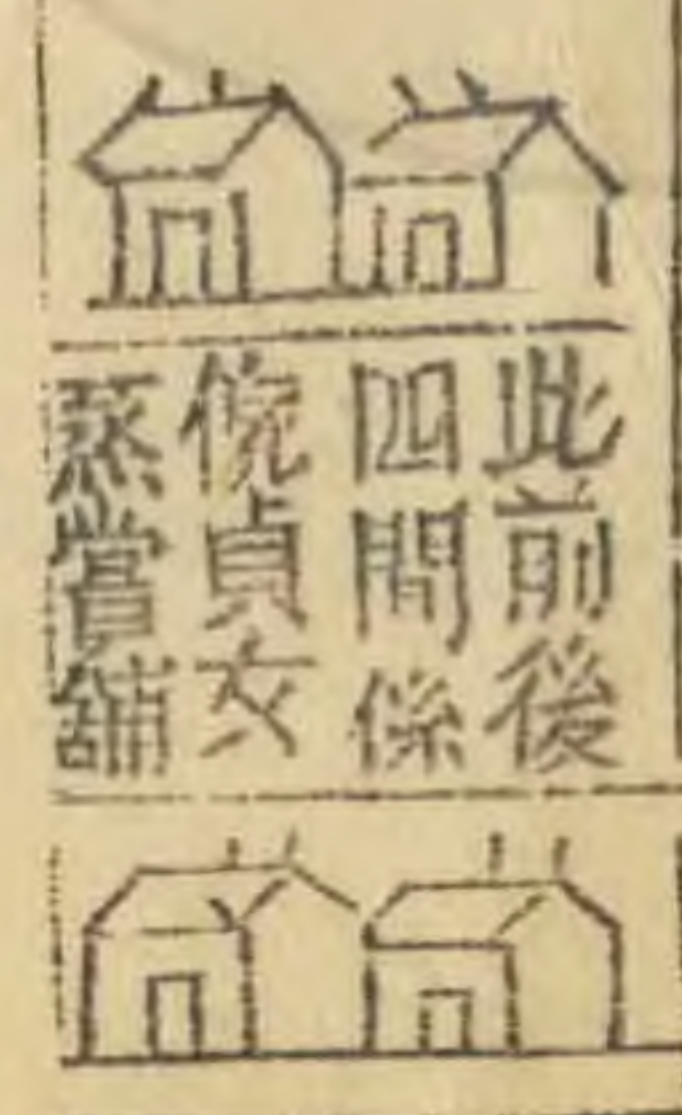 此前後
四間係
倪貞女
蒸嘗舖